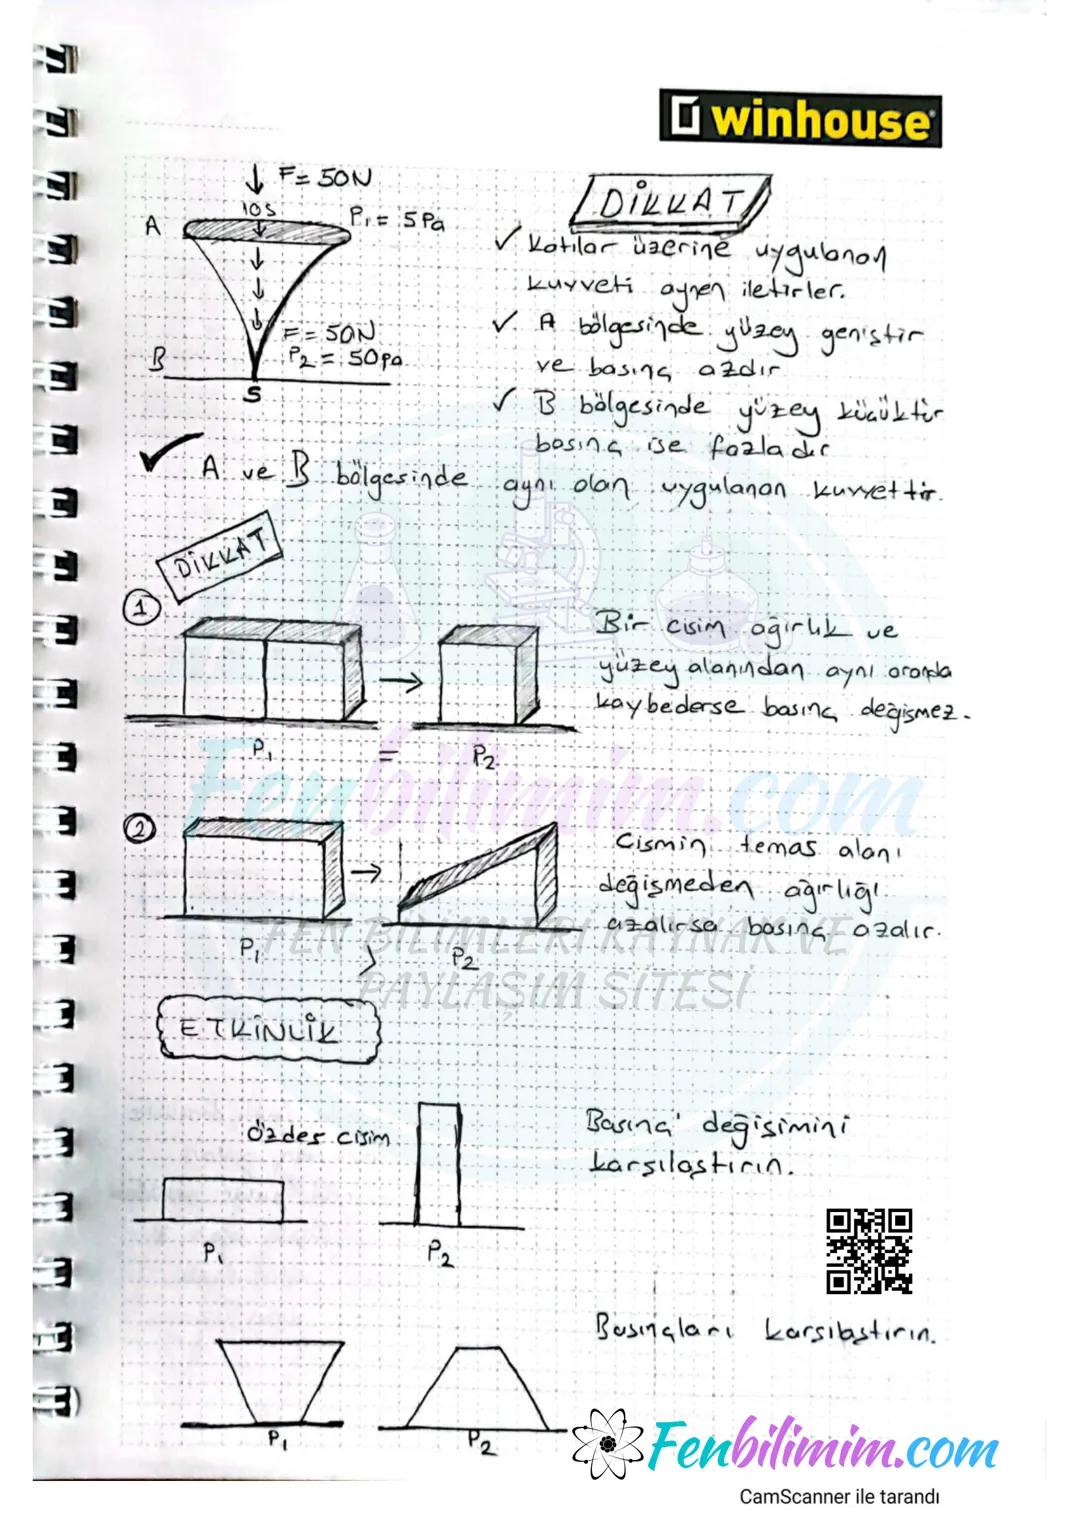 winhouse
F = 50N
10S
A
P₁ = 5 Pa
F = 50N
P₂ = 50 pa
B
S
DİKKAT
✓ Katılar üzerine uygulanan
kuvveti aynen iletirler.
✓ A bölgesinde yüzey geniştir
ve basınç azdır
✓ B bölgesinde yüzey küçüktür
basınç ise fazladır
✓ A ve B bölgesinde aynı olan uygulanan kuvvettir.
DİKKAT
1
Bir cisim ağırlık ve
yüzey alanından aynı oranda
kaybederse basınç değişmez.
P₁ = P₂
Fenbilimim.com
2
Cismin temas alanı
değişmeden ağırlığı
azalırsa basınç azalır.
P₁ > P₂
FEN BİLİMLERİ KAYNAK VE
PAYLAŞIM SİTESİ
ETKİNLİK
özdeş cisim
Basınç' değişimini
karşılaştırın.
P₁
P₂
Basınçları karşılaştırın.
P₁
P₂
Fenbilimim.com
CamScanner ile tarandı